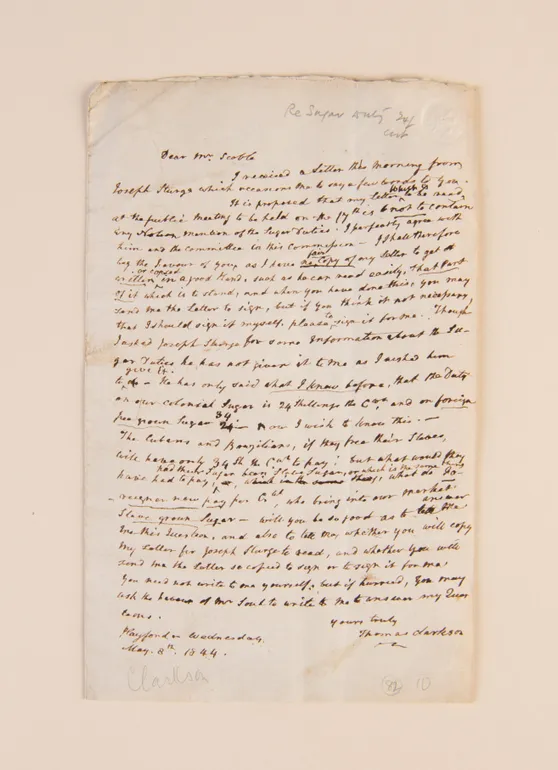 Re Sugar duty 24/
cwt
Dear Mr Scoble
I received a Letter this Morning from
Joseph Sturge which occasions me to say a few words to you.
It is proposed that my letter which is to be read
at the public Meeting to be held on the 17th is not to contain
any Notion mention of the Sugar Duties. I perfectly agree with
him and the Committee in this Omission – I shall therefore
beg the favour of you, as I have no fair Copy of my Letter to get it
written or copied in a good Hand, such as he can read easily, that Part
of it which is to stand, and when you have done this, you may
send me the Letter to sign, but if you think it not necessary,
that I should sign it myself, please to sign it for me. Though
I asked Joseph Sturge for some Information about the Su-
gar Duties he has not given it to me as I wished him
to give it. – He has only said what I knew before, that the Duty
on our colonial Sugar is 24 shillings the Cwt, and on foreign
free grown Sugar 34 – Now I wish to know this. –
The Cubans and Brazilians, if they free their Slaves,
will have only 34 Sh. the Cwt to pay; but what would they
have had to pay, had their Sugar been Slave Sugar, or which is the same thing, what do Fo-
reigners now pay per Cwt, who bring into our market
Slave grown Sugar – will you be so good as to answer me
this Question, and also to tell me whether you will copy
my Letter for Joseph Sturge to read, and whether you will
send me the Letter so copied to sign or to sign it for me.
You need not write to me yourself, but if hurried, you may
ask the favour of Mr Soul to write to me to answer my Ques
tions.
yours truly
Thomas Clarkson
Playford – Wednesday
May. 8th. 1844.
Clarkson